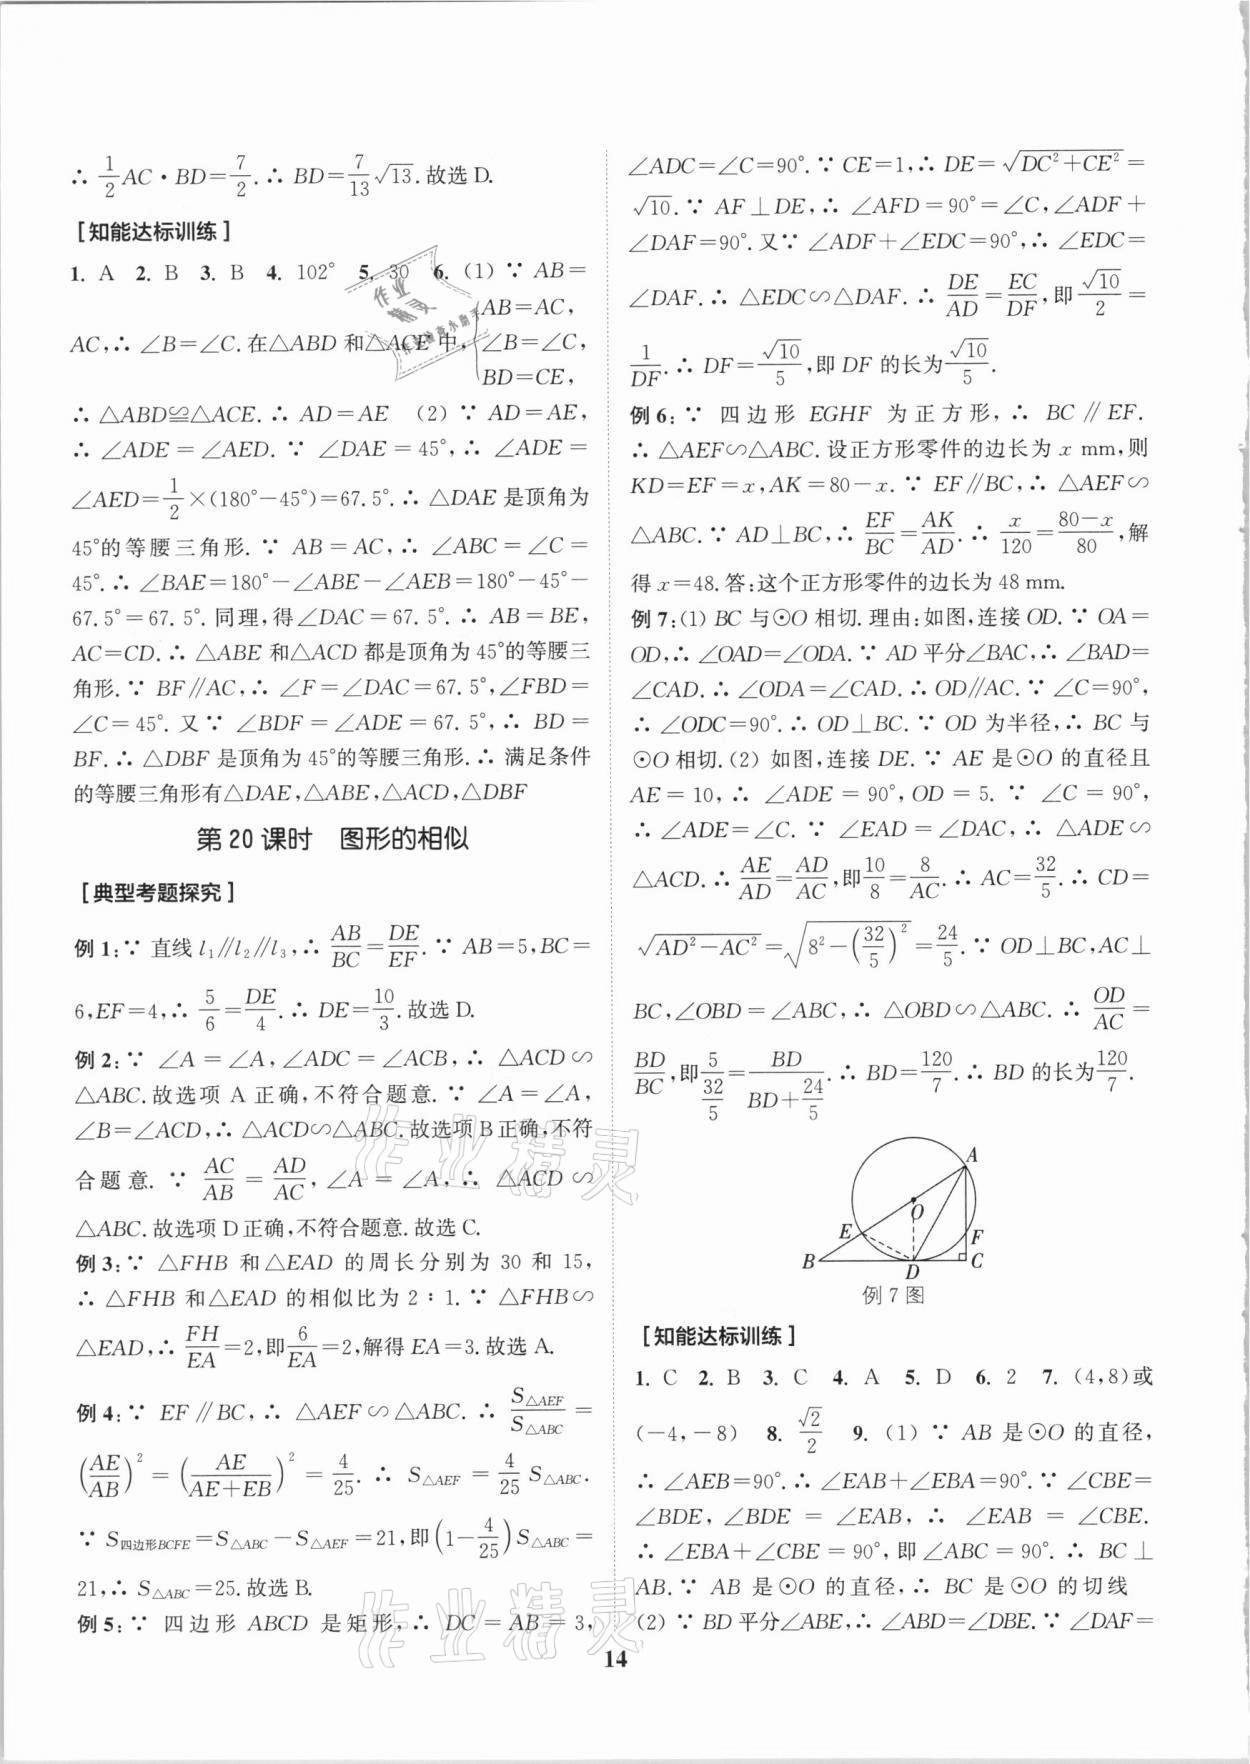 ∴ 1/2 AC·BD=7/2.∴ BD=7/13 √13.故选 D.
[知能达标训练]
1. A  2. B  3. B  4. 102°  5. 30  6. (1) ∵ AB=
AC,∴ ∠B=∠C.在△ABD 和△ACE 中,{AB=AC,
∠B=∠C,
BD=CE,
∴ △ABD≌△ACE.∴ AD=AE (2) ∵ AD=AE,
∴ ∠ADE=∠AED.∵ ∠DAE=45°,∴ ∠ADE=
∠AED=1/2×(180°-45°)=67.5°.∴ △DAE 是顶角为
45°的等腰三角形.∵ AB=AC,∴ ∠ABC=∠C=
45°.∴ ∠BAE=180°-∠ABE-∠AEB=180°-45°-
67.5°=67.5°.同理,得∠DAC=67.5°.∴ AB=BE,
AC=CD.∴ △ABE 和△ACD 都是顶角为45°的等腰三
角形.∵ BF∥AC,∴ ∠F=∠DAC=67.5°,∠FBD=
∠C=45°.又∵ ∠BDF=∠ADE=67.5°,∴ BD=
BF.∴ △DBF 是顶角为45°的等腰三角形.∴ 满足条件
的等腰三角形有△DAE,△ABE,△ACD,△DBF
第 20 课时 图形的相似
[典型考题探究]
例 1:∵ 直线 l₁∥l₂∥l₃,∴ AB/BC=DE/EF.∵ AB=5,BC=
6,EF=4,∴ 5/6=DE/4.∴ DE=10/3.故选 D.
例 2:∵ ∠A=∠A,∠ADC=∠ACB,∴ △ACD∽
△ABC.故选项 A 正确,不符合题意.∵ ∠A=∠A,
∠B=∠ACD,∴ △ACD∽△ABC.故选项 B 正确,不符
合题意.∵ AC/AB=AD/AC,∠A=∠A,∴ △ACD∽
△ABC.故选项 D 正确,不符合题意.故选 C.
例 3:∵ △FHB 和△EAD 的周长分别为 30 和 15,
∴ △FHB 和△EAD 的相似比为 2∶1.∵ △FHB∽
△EAD,∴ FH/EA=2,即6/EA=2,解得 EA=3.故选 A.
例 4:∵ EF∥BC,∴ △AEF∽△ABC.∴ S△AEF/S△ABC=
(AE/AB)²=(AE/(AE+EB))²=4/25.∴ S△AEF=4/25 S△ABC.
∵ S四边形BCFE=S△ABC-S△AEF=21,即(1-4/25)S△ABC=
21,∴ S△ABC=25.故选 B.
例 5:∵ 四边形 ABCD 是矩形,∴ DC=AB=3,
∠ADC=∠C=90°.∵ CE=1,∴ DE=√(DC²+CE²)=
√10.∵ AF⊥DE,∴ ∠AFD=90°=∠C,∠ADF+
∠DAF=90°.又∵ ∠ADF+∠EDC=90°,∴ ∠EDC=
∠DAF.∴ △EDC∽△DAF.∴ DE/AD=EC/DF,即√10/2=
1/DF.∴ DF=√10/5,即 DF 的长为√10/5.
例 6:∵ 四边形 EGHF 为正方形,∴ BC∥EF.
∴ △AEF∽△ABC.设正方形零件的边长为 x mm,则
KD=EF=x,AK=80-x.∵ EF∥BC,∴ △AEF∽
△ABC.∵ AD⊥BC,∴ EF/BC=AK/AD.∴ x/120=(80-x)/80,解
得 x=48.答:这个正方形零件的边长为 48 mm.
例 7:(1) BC 与⊙O 相切.理由:如图,连接 OD.∵ OA=
OD,∴ ∠OAD=∠ODA.∵ AD 平分∠BAC,∴ ∠BAD=
∠CAD.∴ ∠ODA=∠CAD.∴ OD∥AC.∵ ∠C=90°,
∴ ∠ODC=90°.∴ OD⊥BC.∵ OD 为半径,∴ BC 与
⊙O 相切.(2) 如图,连接 DE.∵ AE 是⊙O 的直径且
AE=10,∴ ∠ADE=90°,OD=5.∵ ∠C=90°,
∴ ∠ADE=∠C.∵ ∠EAD=∠DAC,∴ △ADE∽
△ACD.∴ AE/AD=AD/AC,即10/8=8/AC.∴ AC=32/5.∴ CD=
√(AD²-AC²)=√(8²-(32/5)²)=24/5.∵ OD⊥BC,AC⊥
BC,∠OBD=∠ABC,∴ △OBD∽△ABC.∴ OD/AC=
BD/BC,即5/(32/5)=BD/(BD+24/5).∴ BD=120/7.∴ BD 的长为120/7.
A
O
E
F
B
D
C
例 7 图
[知能达标训练]
1. C  2. B  3. C  4. A  5. D  6. 2  7. (4,8)或
(-4,-8)  8. √2/2  9. (1) ∵ AB 是⊙O 的直径,
∴ ∠AEB=90°.∴ ∠EAB+∠EBA=90°.∵ ∠CBE=
∠BDE,∠BDE=∠EAB,∴ ∠EAB=∠CBE.
∴ ∠EBA+∠CBE=90°,即∠ABC=90°.∴ BC⊥
AB.∵ AB 是⊙O 的直径,∴ BC 是⊙O 的切线
(2) ∵ BD平分∠ABE,∴ ∠ABD=∠DBE.∵ ∠DAF=
14
作业精灵
作业精灵
作业精灵